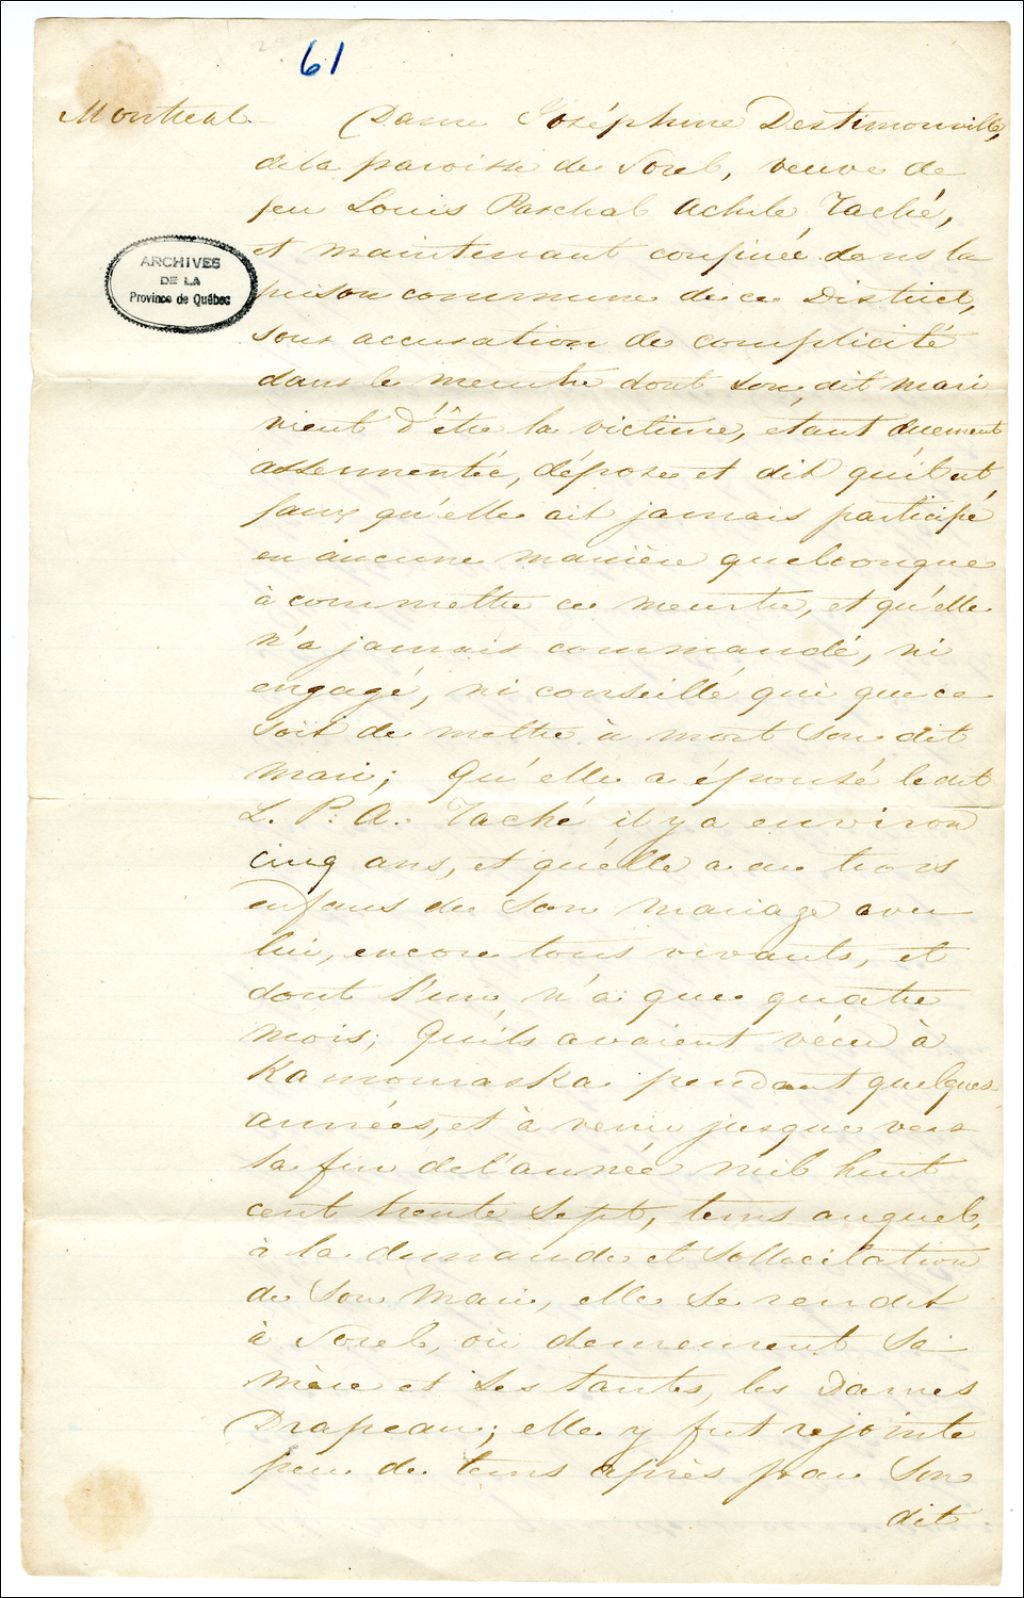 61
Montreal. Dame Joséphine Destimonville,
de la paroisse de Sorel, veuve de
feu Louis Paschal Achile Taché,
et maintenant confinée dans la
prison commune de ce District,
sous accusation de complicité
dans le meurtre dont son dit mari
vient d'être la victime, étant duement
assermentée, dépose et dit qu'il est
faux qu'elle ait jamais participé
en aucune manière quelconque
à commettre ce meurtre, et qu'elle
n'a jamais commandé, ni
engagé, ni conseillé qui que ce
soit de mettre à mort son dit
mari; Qu'elle a épousé le dit
L. P. A. Taché il y a environ
cinq ans, et qu'elle a eu trois
enfans de son mariage avec
lui, encore tous vivants, et
dont l'un n'a que quatre
mois; Qu'ils avaient vécu à
Kamouraska pendant quelques
années, et à venir jusque vers
la fin de l'année mil huit
cent trente sept, tems auquel,
à la demande et sollicitation
de son mari, elle se rendit
à Sorel, où demeurent sa
mère et ses tantes, les Dames
Drapeau; elle y fut rejointe
peu de tems après par son
dit
ARCHIVES
DE LA
Province de Québec